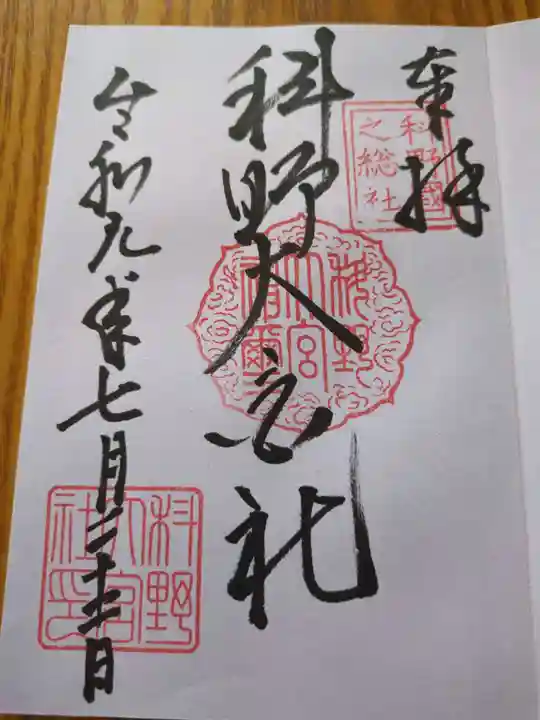 奉拝
科野國
之総社
科野大宮社
科野
大宮
科野
大宮
社印
令和元年七月二十日